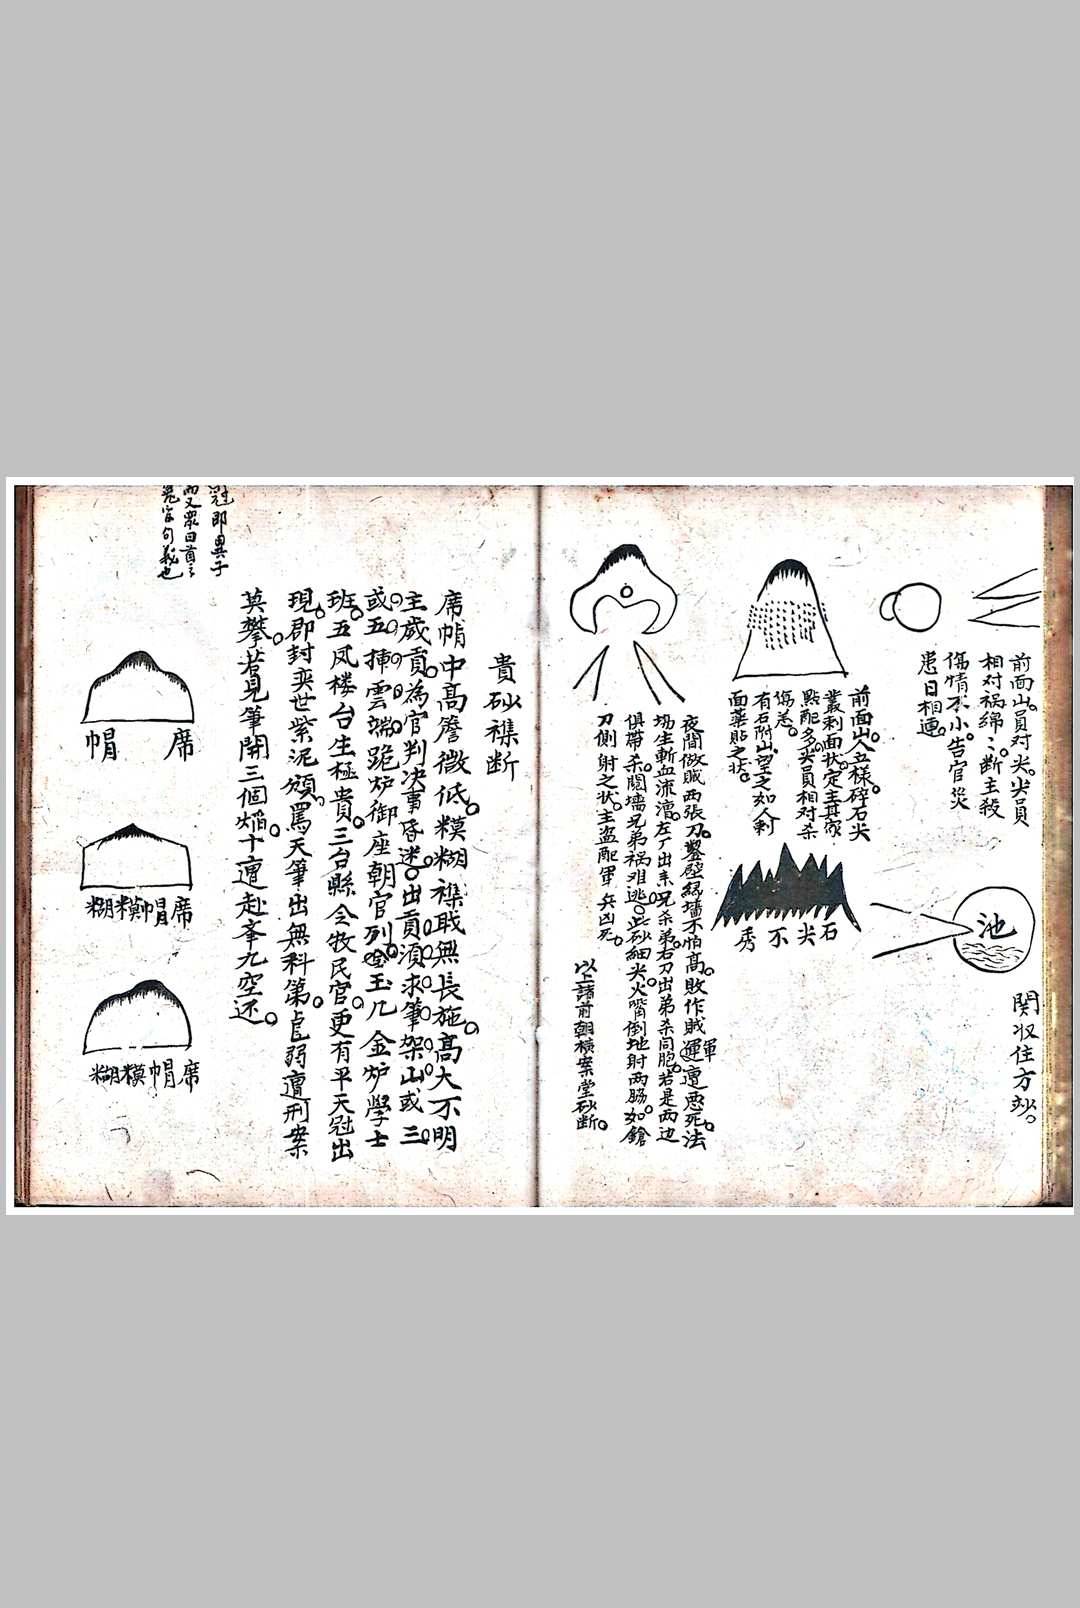 前面山員对尖尖員
相对祸綿〻断主殺
傷情不小告官災
患日相連
池
関収住方妙
前面山人五樣碎石尖
叢刺面状定主其家
點配多尖員相对杀
傷恙
有石附山望之如人刺
面薬貼之状
石尖不秀
夜間做贼两張刀鑿壁緣墙不怕高敗作贼軍運遭悪死法
場生斬血流漕左刀出来兄杀弟右刀出弟杀同胞若是两边
俱帶杀鬩墙兄弟祸难逃此砂細尖火嘴倒地射两脇如鎗
刀側射之状主盗配軍兵凶死
以上諸前朝横案堂砂断
貴砂襍断
席帽中高簷微低糢糊襍職無長施高大不明
主歲貢為官判决事昏迷出貢須求筆架山或三
或五揷雲端跪炉御座朝官列登玉几金炉學士
班五凤楼台生極貴三台縣令牧民官更有平天冠出
現郡封奕世紫泥頒罵天筆出無科第虗弱遭刑案
莫攀若見筆開三個焰十遭赴峯九空还
冠即異子
席帽
席帽糢糊
席帽糢糊